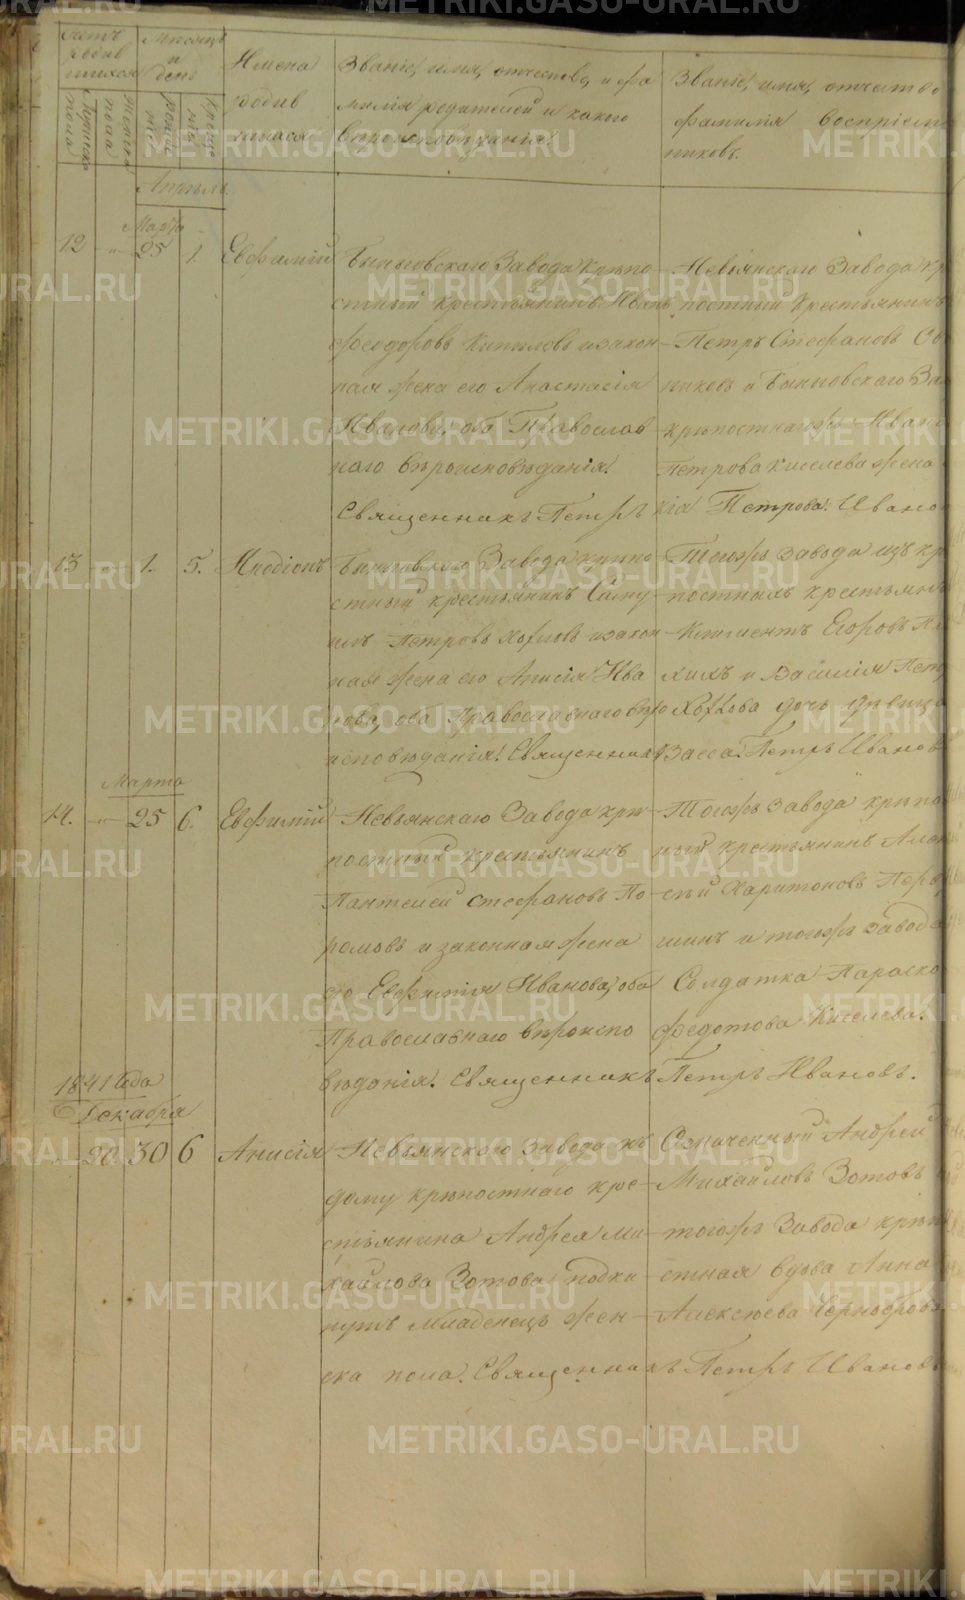 Счетъ родив шихся
Мѣсяцъ и день
Имена родив шихся
Званіе, имя, отчество, и фа
милія родителей и какого
вѣроисповѣданія.
Званіе, имя, отчество
фамилія воспріем
никовъ.
Мужеска пола
Женска пола
Рожде нія
Креще нія
Апрѣль.
Марта
12 " 25 1.
Быньговскаго Завода крѣпо
стный крестьянинъ Иванъ
Феодоровъ и закон
ная жена его Анастасія
Иванова, оба Православ
наго вѣроисповѣданія.
Священникъ Петръ Ивано
Невьянскаго Завода кр
постный крестьянинъ
Петръ Стефановъ
никовъ и Быньговскаго За
крѣпостнагожъ Ивана
Петрова Киселева жена
кія Петрова.
13 1. 5. Иродіонъ
Быньговскаго Завода крѣпо
стный крестьянинъ Саму
илъ Петровъ и закон
ная жена его Анисія Ива
нова, оба Православнаго вѣро
исповѣданія. Священникъ Петръ Иванов
Тогожъ завода изъ кр
постныхъ крестьянъ
Климентъ Егоровъ
и Василія Петр
дочь дѣвица
Васса.
Марта
14. " 25 6. Евфимій
Невьянскаго Завода крѣ
постный крестьянинъ
Пантелей Стефановъ По
ромовъ и законная жена
его Евфимія Иванова, оба
Православнаго вѣроиспо
вѣданія. Священникъ Петръ Ивановъ.
Тогожъ завода крѣпо
ный крестьянинъ Алек
сѣй Харитоновъ
шинъ и тогожъ завода
Солдатка Параско
Федотова Киселева.
1841 Года
Декабря
20. 30 6 Анисія
Невьянскаго завода къ
дому крѣпостнаго кре
стьянина Андрея Ми
хайлова Зотова подки
нутъ младенецъ жен
ска пола. Священникъ Петръ Ивановъ
Означенный Андрей
Михайловъ Зотовъ
тогожъ Завода крѣп
стная вдова Анна
Алексѣева Черноброво
METRIKI.GASO-URAL.RU